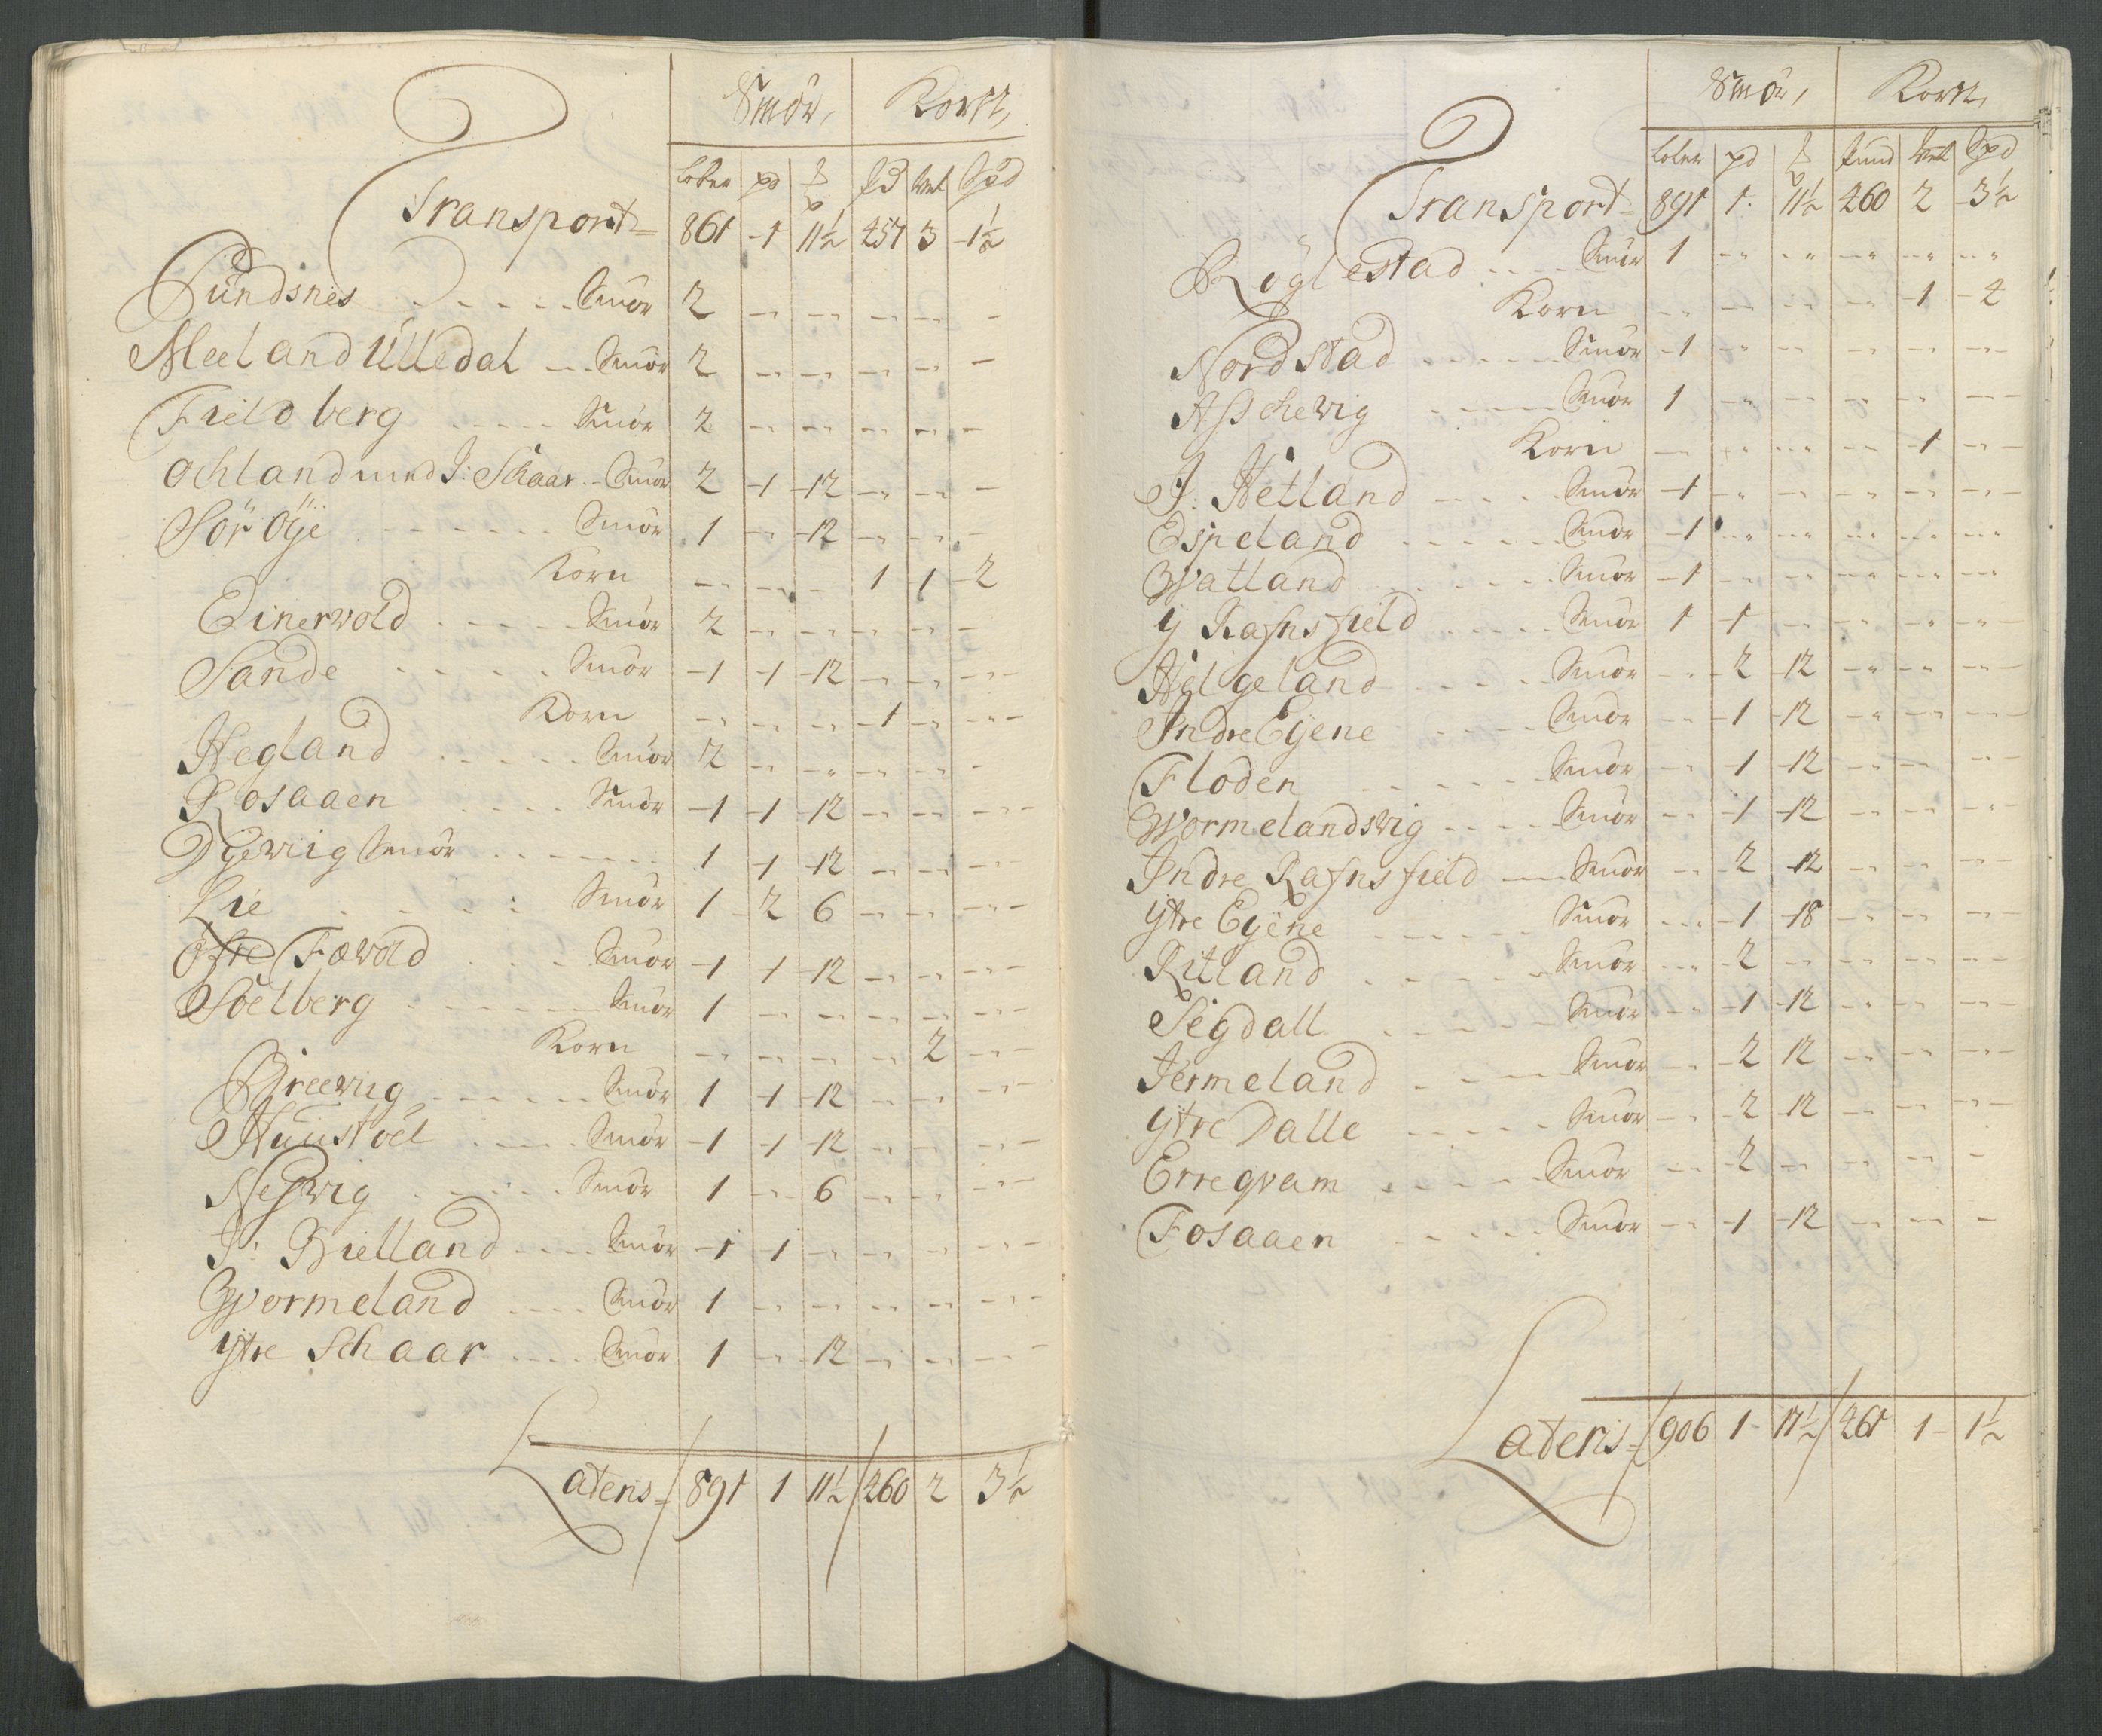 Smör, Korn,
Løber pd ℔ PD Wel Spd
Transport= 861 -1 11½ 457 3 -1½
Sundsnes Smör 2
Meeland Ulledal Smör 2
Field berg Smör 2
Ochland med I: Schaar Smör 2 -1 -12
Sör Öÿe Smör 1 -12
Korn 1 1 -2
Einervold Smör 2
Sande Smör -1 -1 -12
Korn -1
Hegland Smör 2
Rosaaen Smör -1 -1 -12
Dÿeviig Smör 1 -1 -12
Lie Smör 1 2 6
Öfre Fævold Smör -1 -1 -12
Soelberg Smör 1
Korn 2
Breevig Smör 1 -1 -12
Huustoel Smör -1 -1 -12
Neswig Smör 1 6
I: Bielland Smör -1 -1
Wormeland Smör 1
Ytre Schaar Smör 1 12
Lateris= 891 1 11½ 460 2 3½
Smör, Korn,
Løber pd ℔ Pund Wel Spd
Transport= 891 1 11½ 460 2 -3½
Röglestad Smör 1
Korn -1 -4
Nordstad Smör -1
Aschevig Smör 1
Korn -1
I: Hetland Smör -1
Espeland Smör -1
Watland Smör -1
Y Rafnsfield Smör 1 -1
Helgeland Smör 2 -12
Indre Eÿene Smör -1 -12
Floden Smör -1 -12
Wormelandsvig Smör -1 -12
Indre Rafnsfield Smör 2 -12
Ytre Eÿene Smör -1 -18
Ritland Smör 2
Segdall Smör -1 -12
Jermeland Smör 2 12
Ytre Dalle Smör 2 12
Erreqvam Smör 2
Fosaaen Smör -1 -12
Lateris= 906 1 17½ 461 1 1½